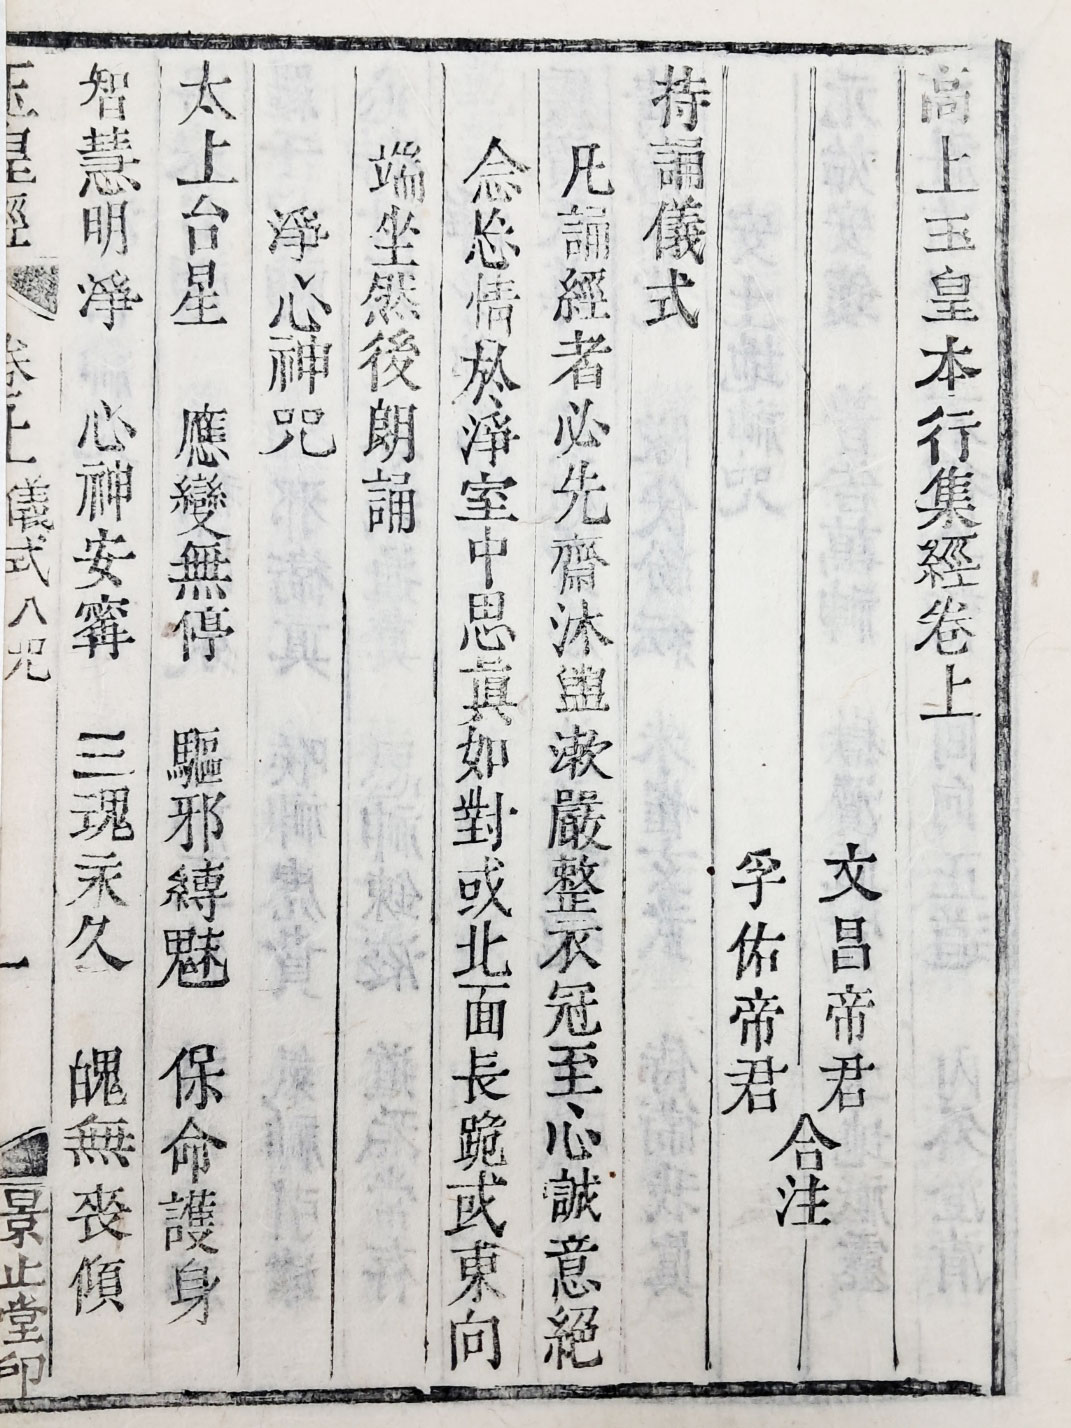 高上玉皇本行集經卷上
文昌帝君
孚佑帝君
合注
持誦儀式
凡誦經者必先齋沐盥漱嚴整衣冠至心誠意絕
念忘情於淨室中思眞如對或北面長跪或東向
端坐然後朗誦
淨心神咒
太上台星 應變無停 驅邪縛魅 保命護身
智慧明淨 心神安寗 三魂永久 魄無喪傾
玉皇經 卷上 儀式八咒 一 景止堂印